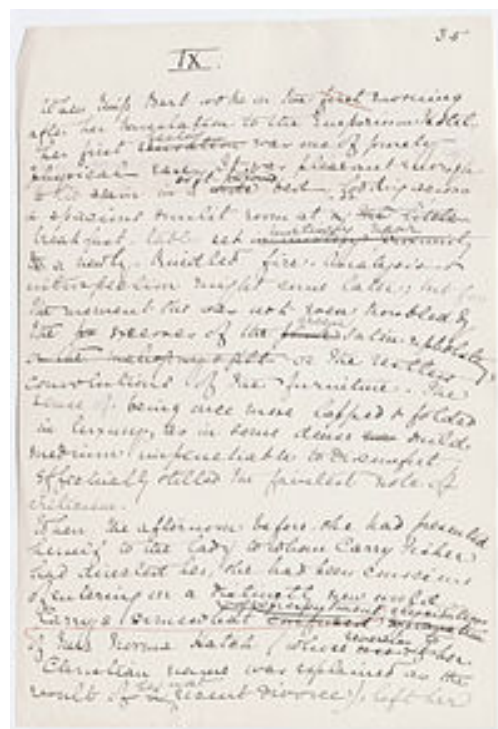 35
IX.
When Miss Bart woke in the first morning
after her translation to the Emporium Hotel
her first sensation was one of purely
physical ease. It was pleasant enough
to lie again in a soft bed looking across
a spacious sunlit room at a little
breakfast table set invitingly near
to a newly-kindled fire. Analysis &
introspection might come later; but for
the moment she was not even troubled by
the excesses of the satin upholstery
or the restless
convolutions of the furniture. The
sense of being once more lapped & folded
in luxury, as in some dense mild
medium impenetrable to discomfort
effectually stilled the faintest note of
criticism.
When the afternoon before she had presented
herself to the lady to whom Carry Fisher
had directed her, she had been conscious
of entering on a distinctly new world.
Carry's somewhat
of Mrs Norma Hatch (whose reversion to her
Christian name was explained as the
result of her recent divorce), left her